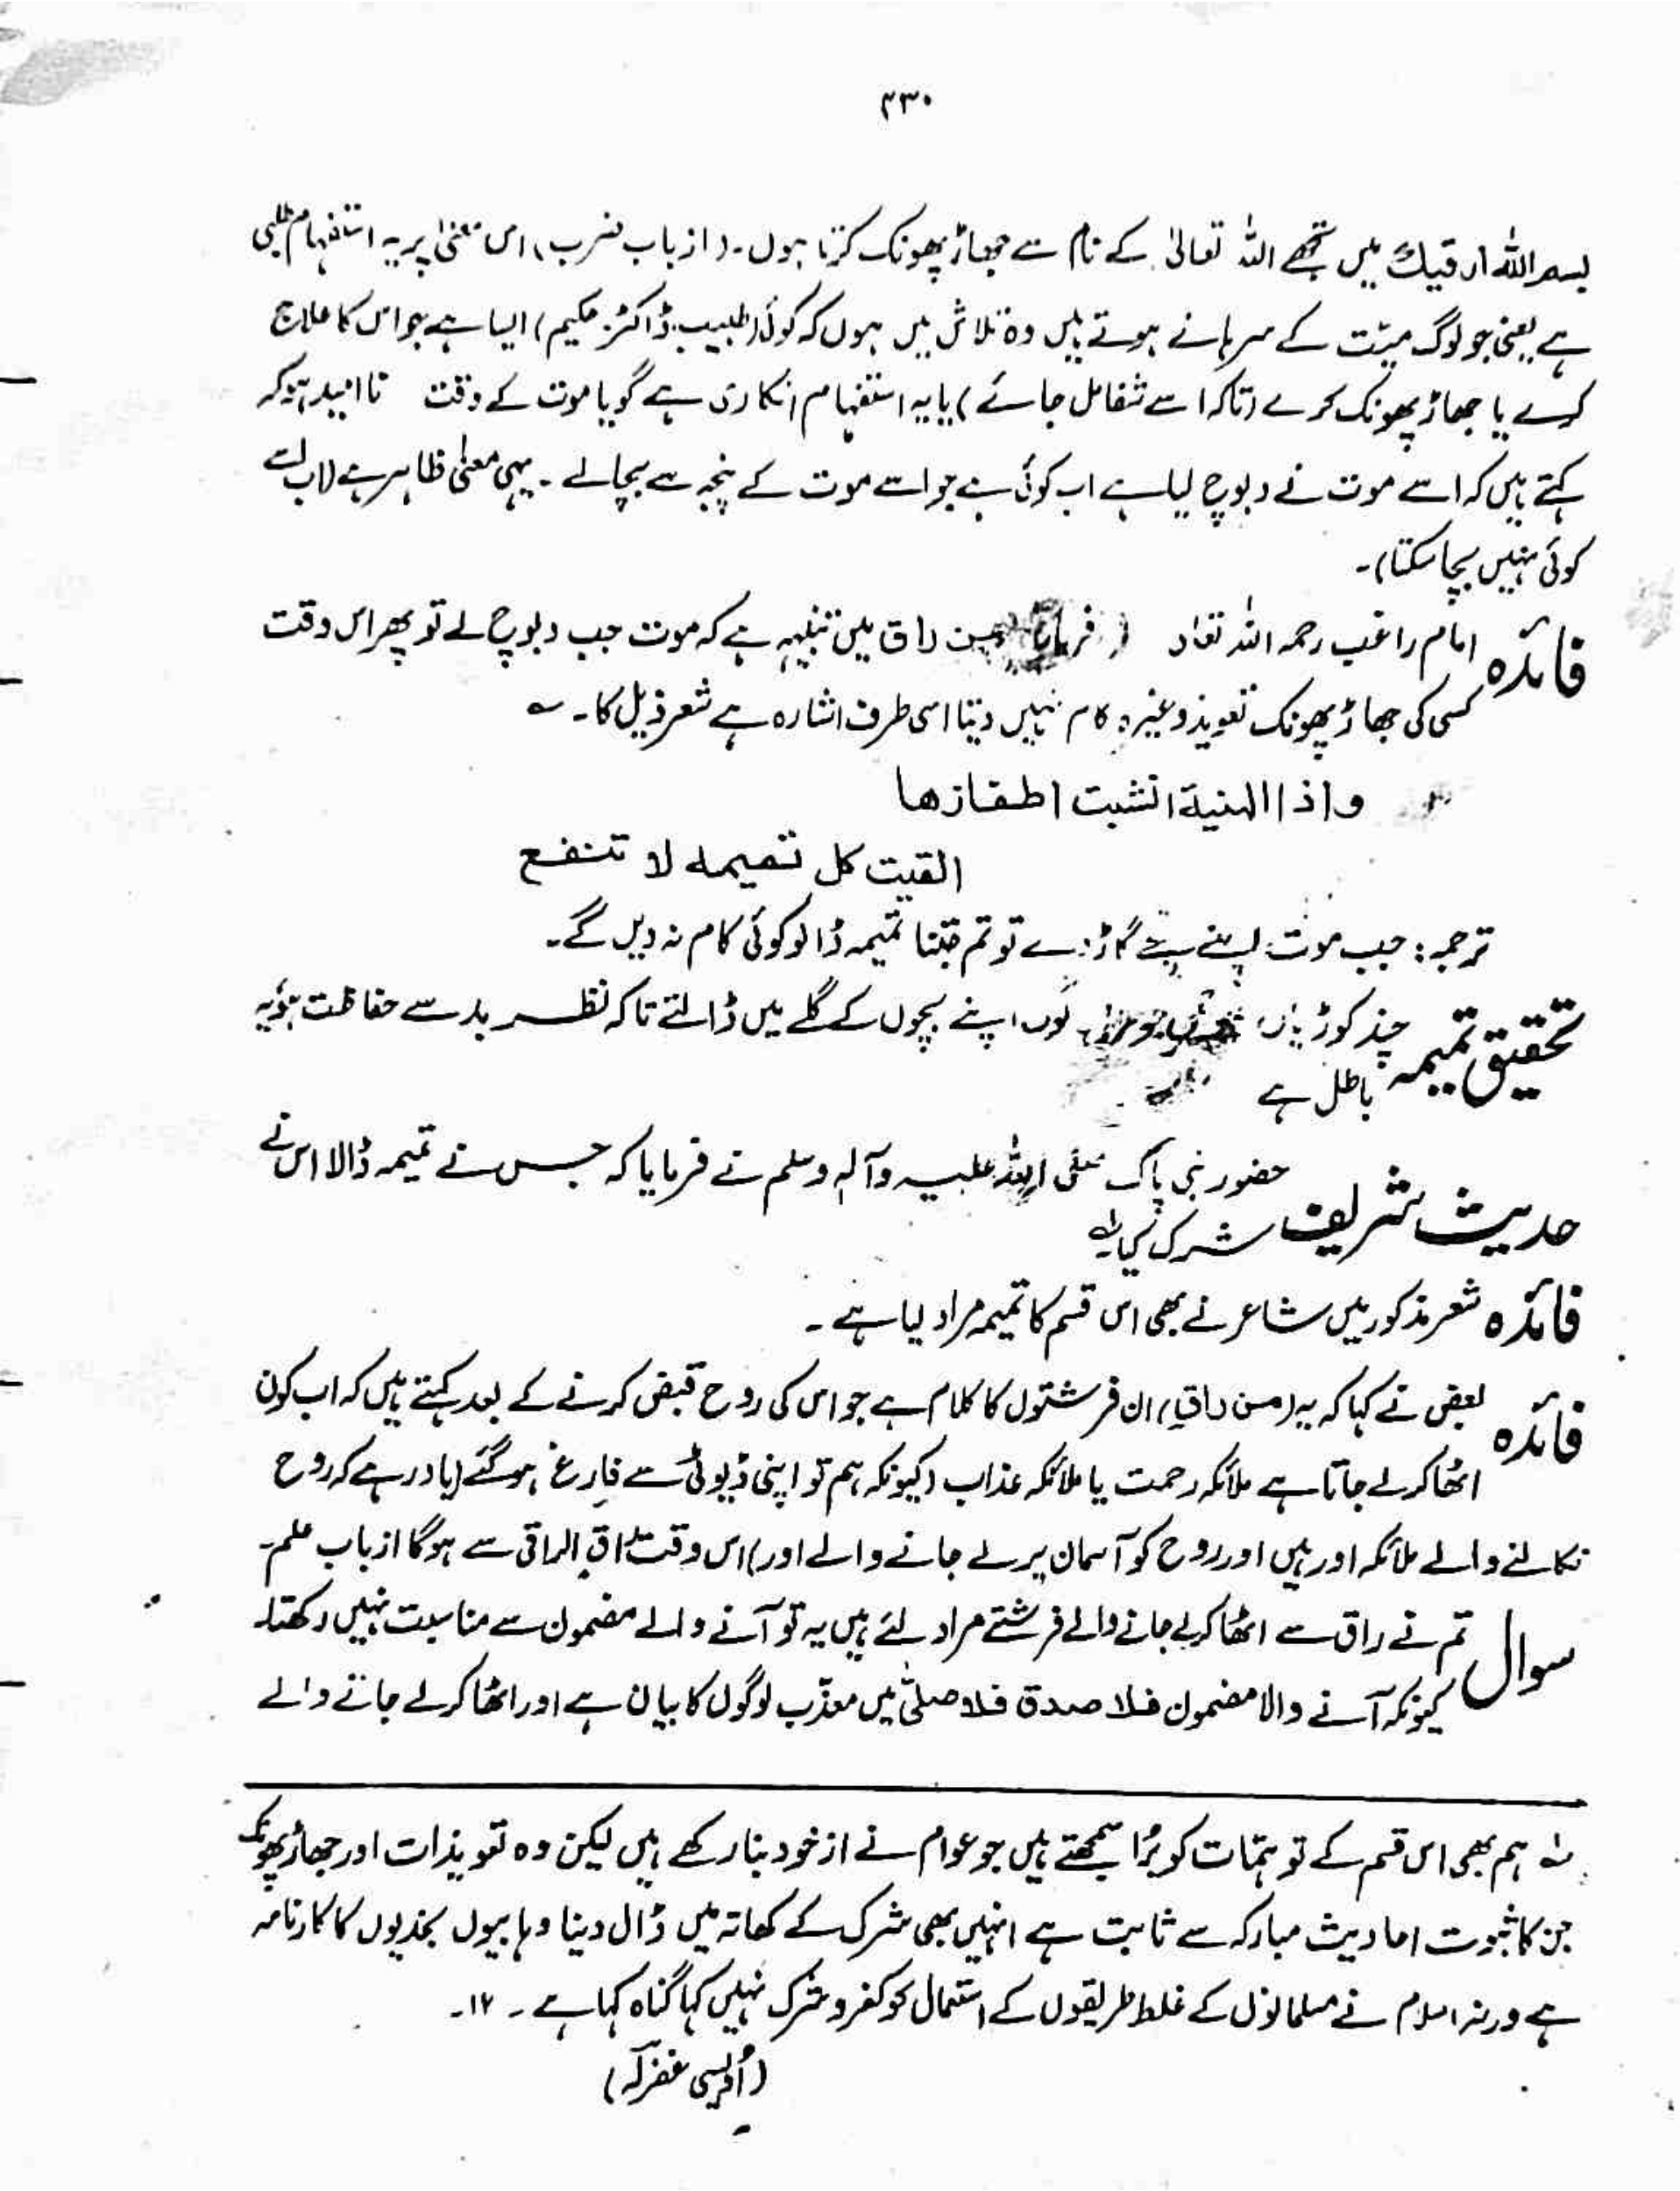 ۲۳۰
بسم اللہ ارقیك میں تجھے اللہ تعالیٰ کے نام سے جھاڑ پھونک کرتا ہوں۔ (از باب ضرب) اس معنیٰ پر یہ استفہام طلبی
ہے یعنی جو لوگ میّت کے سرہانے ہوتے ہیں وہ تلاش میں ہوں کہ کوئی (طبیب ڈاکٹر حکیم) ایسا ہے جو اس کا علاج
کرے یا جھاڑ پھونک کرے (تاکہ اسے شفا مل جائے) یا یہ استفہام انکاری ہے گویا موت کے وقت ناامید ہو کر
کہتے ہیں کہ اسے موت نے دبوچ لیا ہے اب کوئی ہے جو اسے موت کے پنجہ سے بچالے۔ یہی معنیٰ ظاہر ہے (اب اسے
کوئی نہیں بچا سکتا)۔
فائدہ امام راغب رحمہ اللہ تعالٰی فرمایا من راق میں تنبیہہ ہے کہ موت جب دبوچ لے تو پھر اس وقت
کسی کی جھاڑ پھونک تعویذ وغیرہ کام نہیں دیتا اسی طرف اشارہ ہے شعر ذیل کا۔ ؎
واذا المنیة انشبت اظفارھا
القیت کل تمیمہ لا تنفع
ترجمہ: جب موت اپنے پنجے گاڑ دے تو تم جتنا تمیمہ ڈالو کوئی کام نہ دیں گے۔
تحقیق تمیمہ چند کوڑیاں لوگ اپنے بچوں کے گلے میں ڈالتے تاکہ نظر بد سے حفاظت ہو یہ
باطل ہے
حدیث شریف حضور نبی پاک صلی اللہ علیہ وآلہ وسلم نے فرمایا کہ جس نے تمیمہ ڈالا اس نے
شرک کیا۔؎۱
فائدہ شعر مذکور میں شاعر نے بھی اس قسم کا تمیمہ مراد لیا ہے۔
فائدہ بعض نے کہا کہ یہ (من راق) ان فرشتوں کا کلام ہے جو اس کی روح قبض کرنے کے بعد کہتے ہیں کہ اب کون
اٹھا کر لے جاتا ہے ملائکہ رحمت یا ملائکہ عذاب (کیونکہ ہم تو اپنی ڈیوٹی سے فارغ ہو گئے (یاد رہے کہ روح
نکالنے والے ملائکہ اور ہیں اور روح کو آسمان پر لے جانے والے اور) اس وقت راق الراقی سے ہوگا از باب علم۔
سوال تم نے راق سے اٹھا کر لے جانے والے فرشتے مراد لئے ہیں یہ تو آنے والے مضمون سے مناسبت نہیں رکھتا۔
کیونکہ آنے والا مضمون فلا صدق فلا صلیّٰ میں معذّب لوگوں کا بیان ہے اور اٹھا کر لے جانے والے
؎۱ ہم بھی اس قسم کے توہّمات کو بُرا سمجھتے ہیں جو عوام نے از خود بنا رکھے ہیں لیکن وہ تعویذات اور جھاڑ پھونک
جن کا ثبوت احادیث مبارکہ سے ثابت ہے انہیں بھی شرک کے کھاتہ میں ڈال دینا وہابیوں نجدیوں کا کارنامہ
ہے ورنہ اسلام نے مسلمانوں کے غلط طریقوں کے استعمال کو کفر و شرک نہیں کہا گناہ کہا ہے۔ ۱۲۔
(اُویسی غفرلہ)